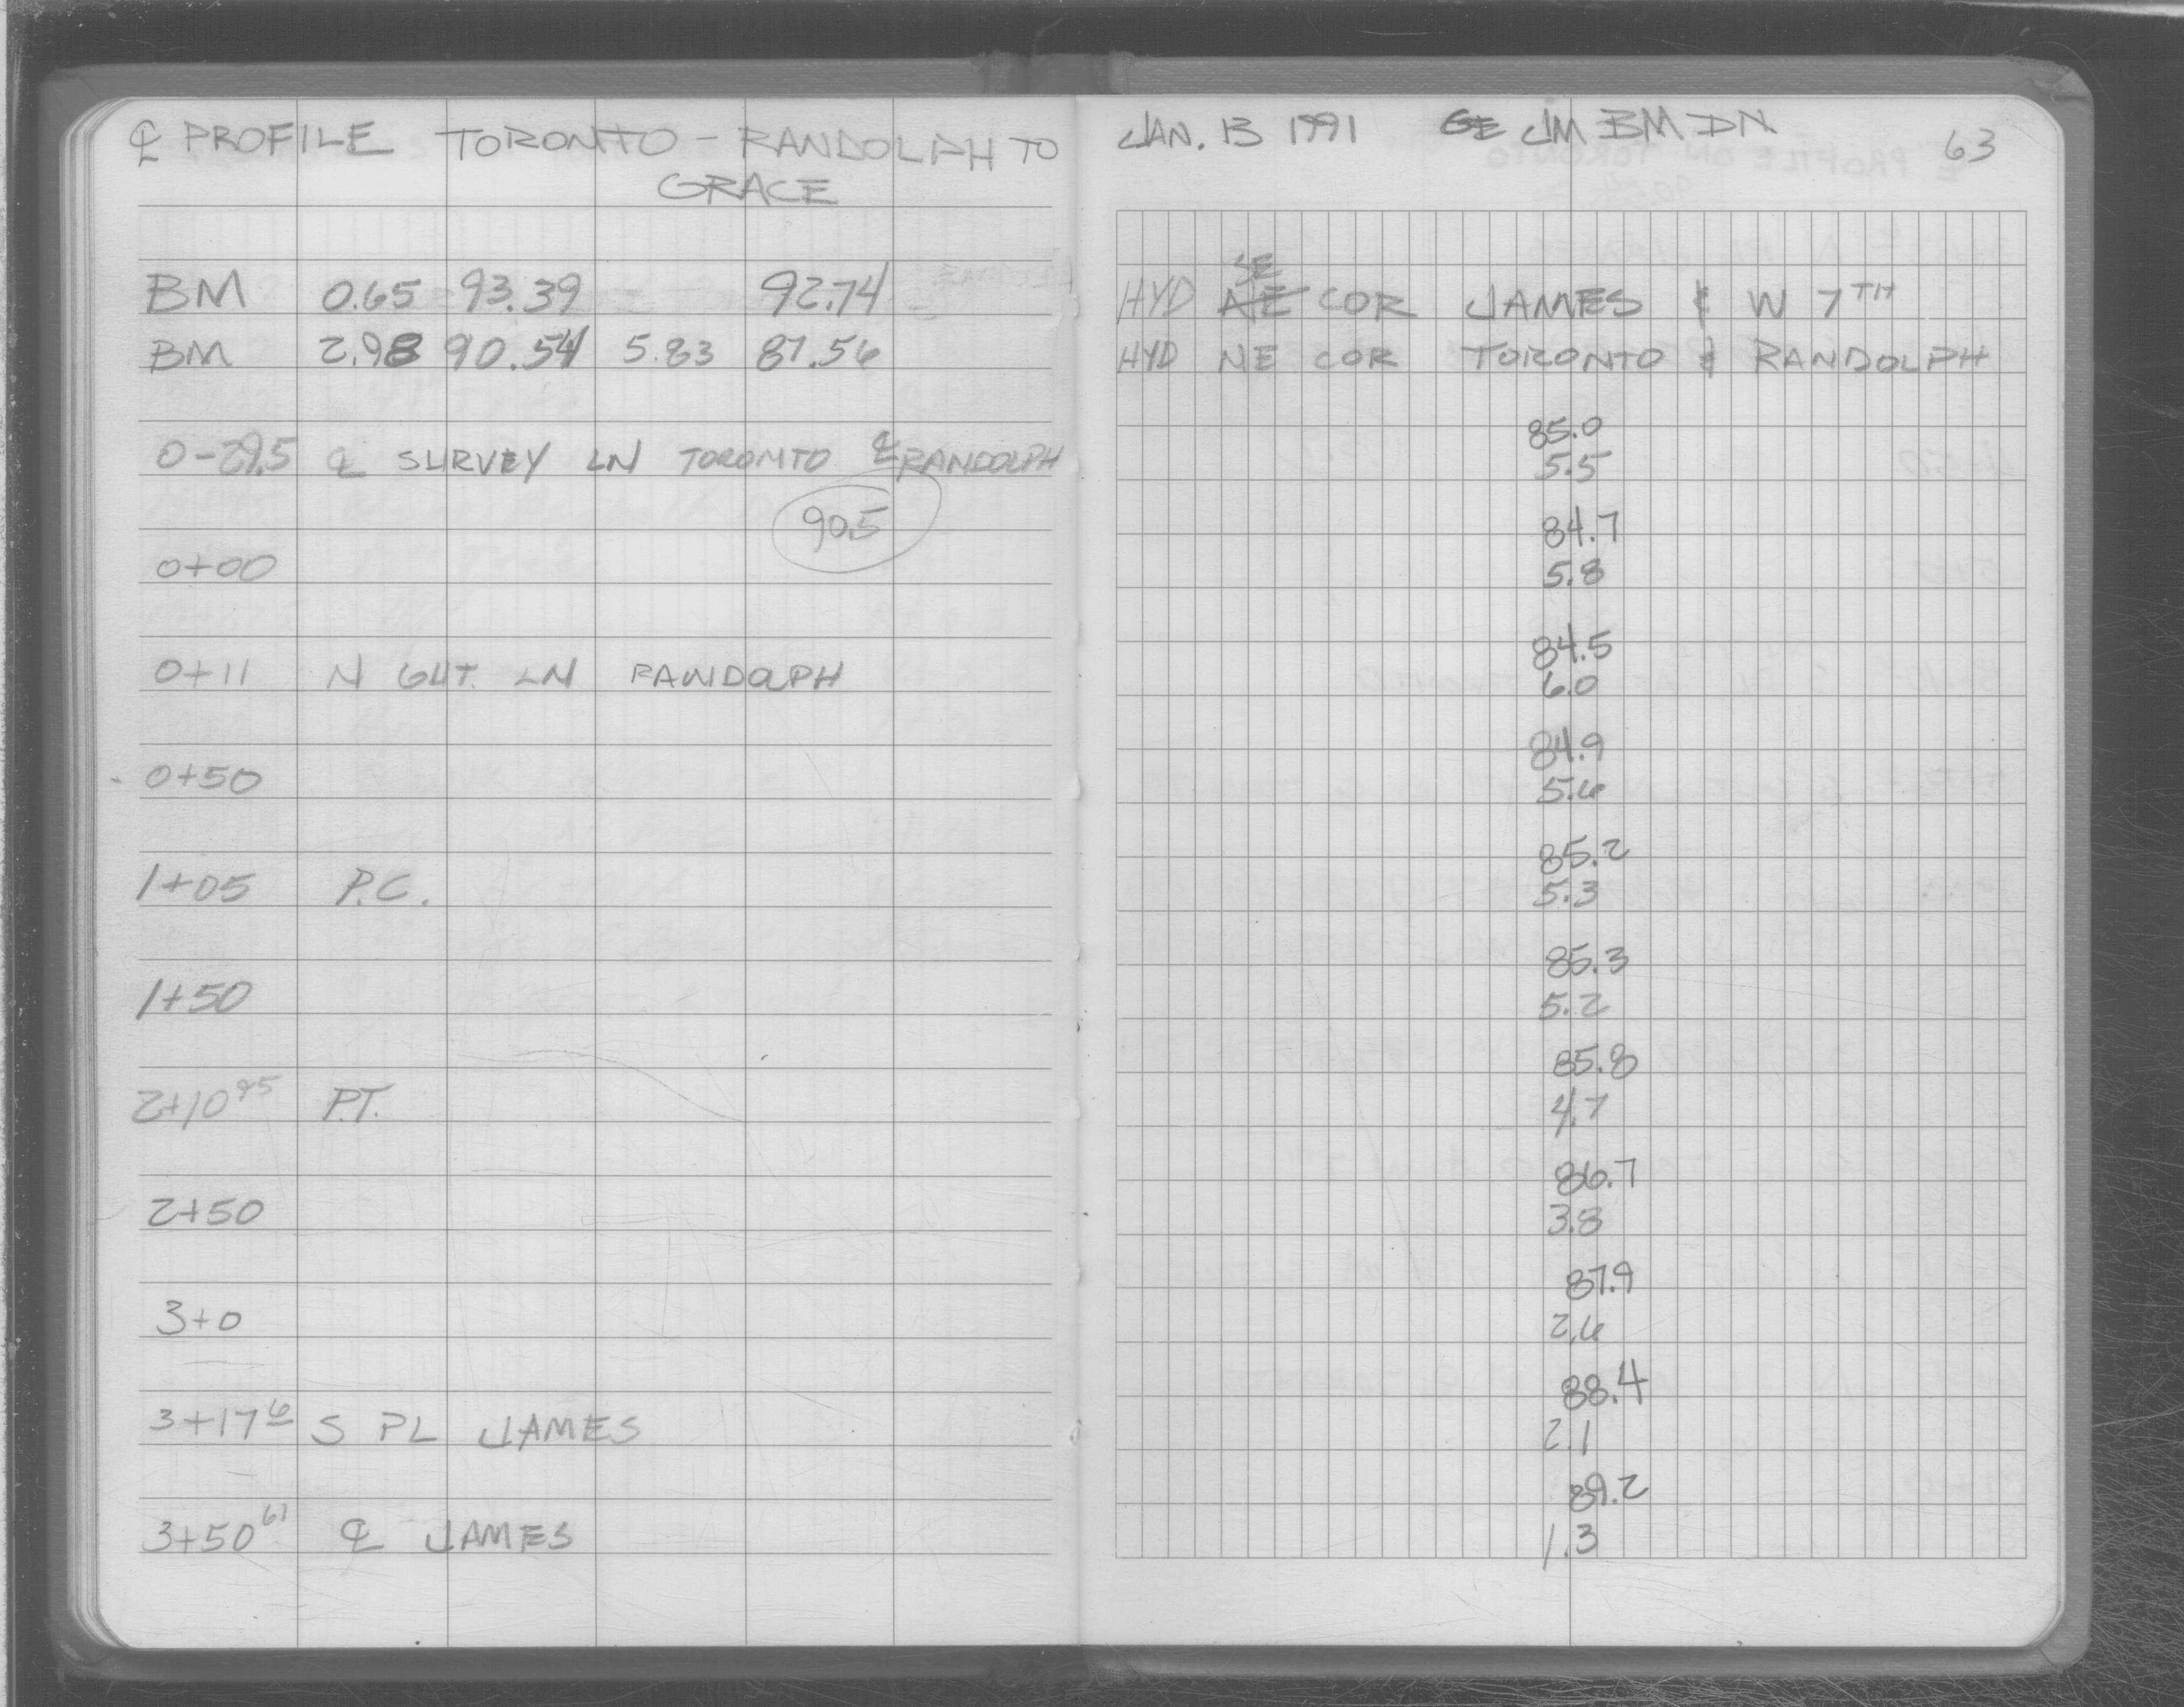 ℄ PROFILE TORONTO - RANDOLPH TO
GRACE
BM 0.65 93.39 92.74
BM 2.98 90.54 5.83 87.56
0-29.5 ℄ SURVEY LN TORONTO ℄ RANDOLPH
90.5
0+00
0+11 N GUT. LN RANDOLPH
0+50
1+05 P.C.
1+50
2+10 95 P.T.
2+50
3+0
3+17 6 S PL JAMES
3+50 61 ℄ JAMES
JAN. 13 1991 GE JM BM DN 63
SE
HYD NE COR JAMES & W 7TH
HYD NE COR TORONTO & RANDOLPH
85.0
5.5
84.7
5.8
84.5
6.0
84.9
5.6
85.2
5.3
85.3
5.2
85.8
4.7
86.7
3.8
87.9
2.6
88.4
2.1
89.2
1.3